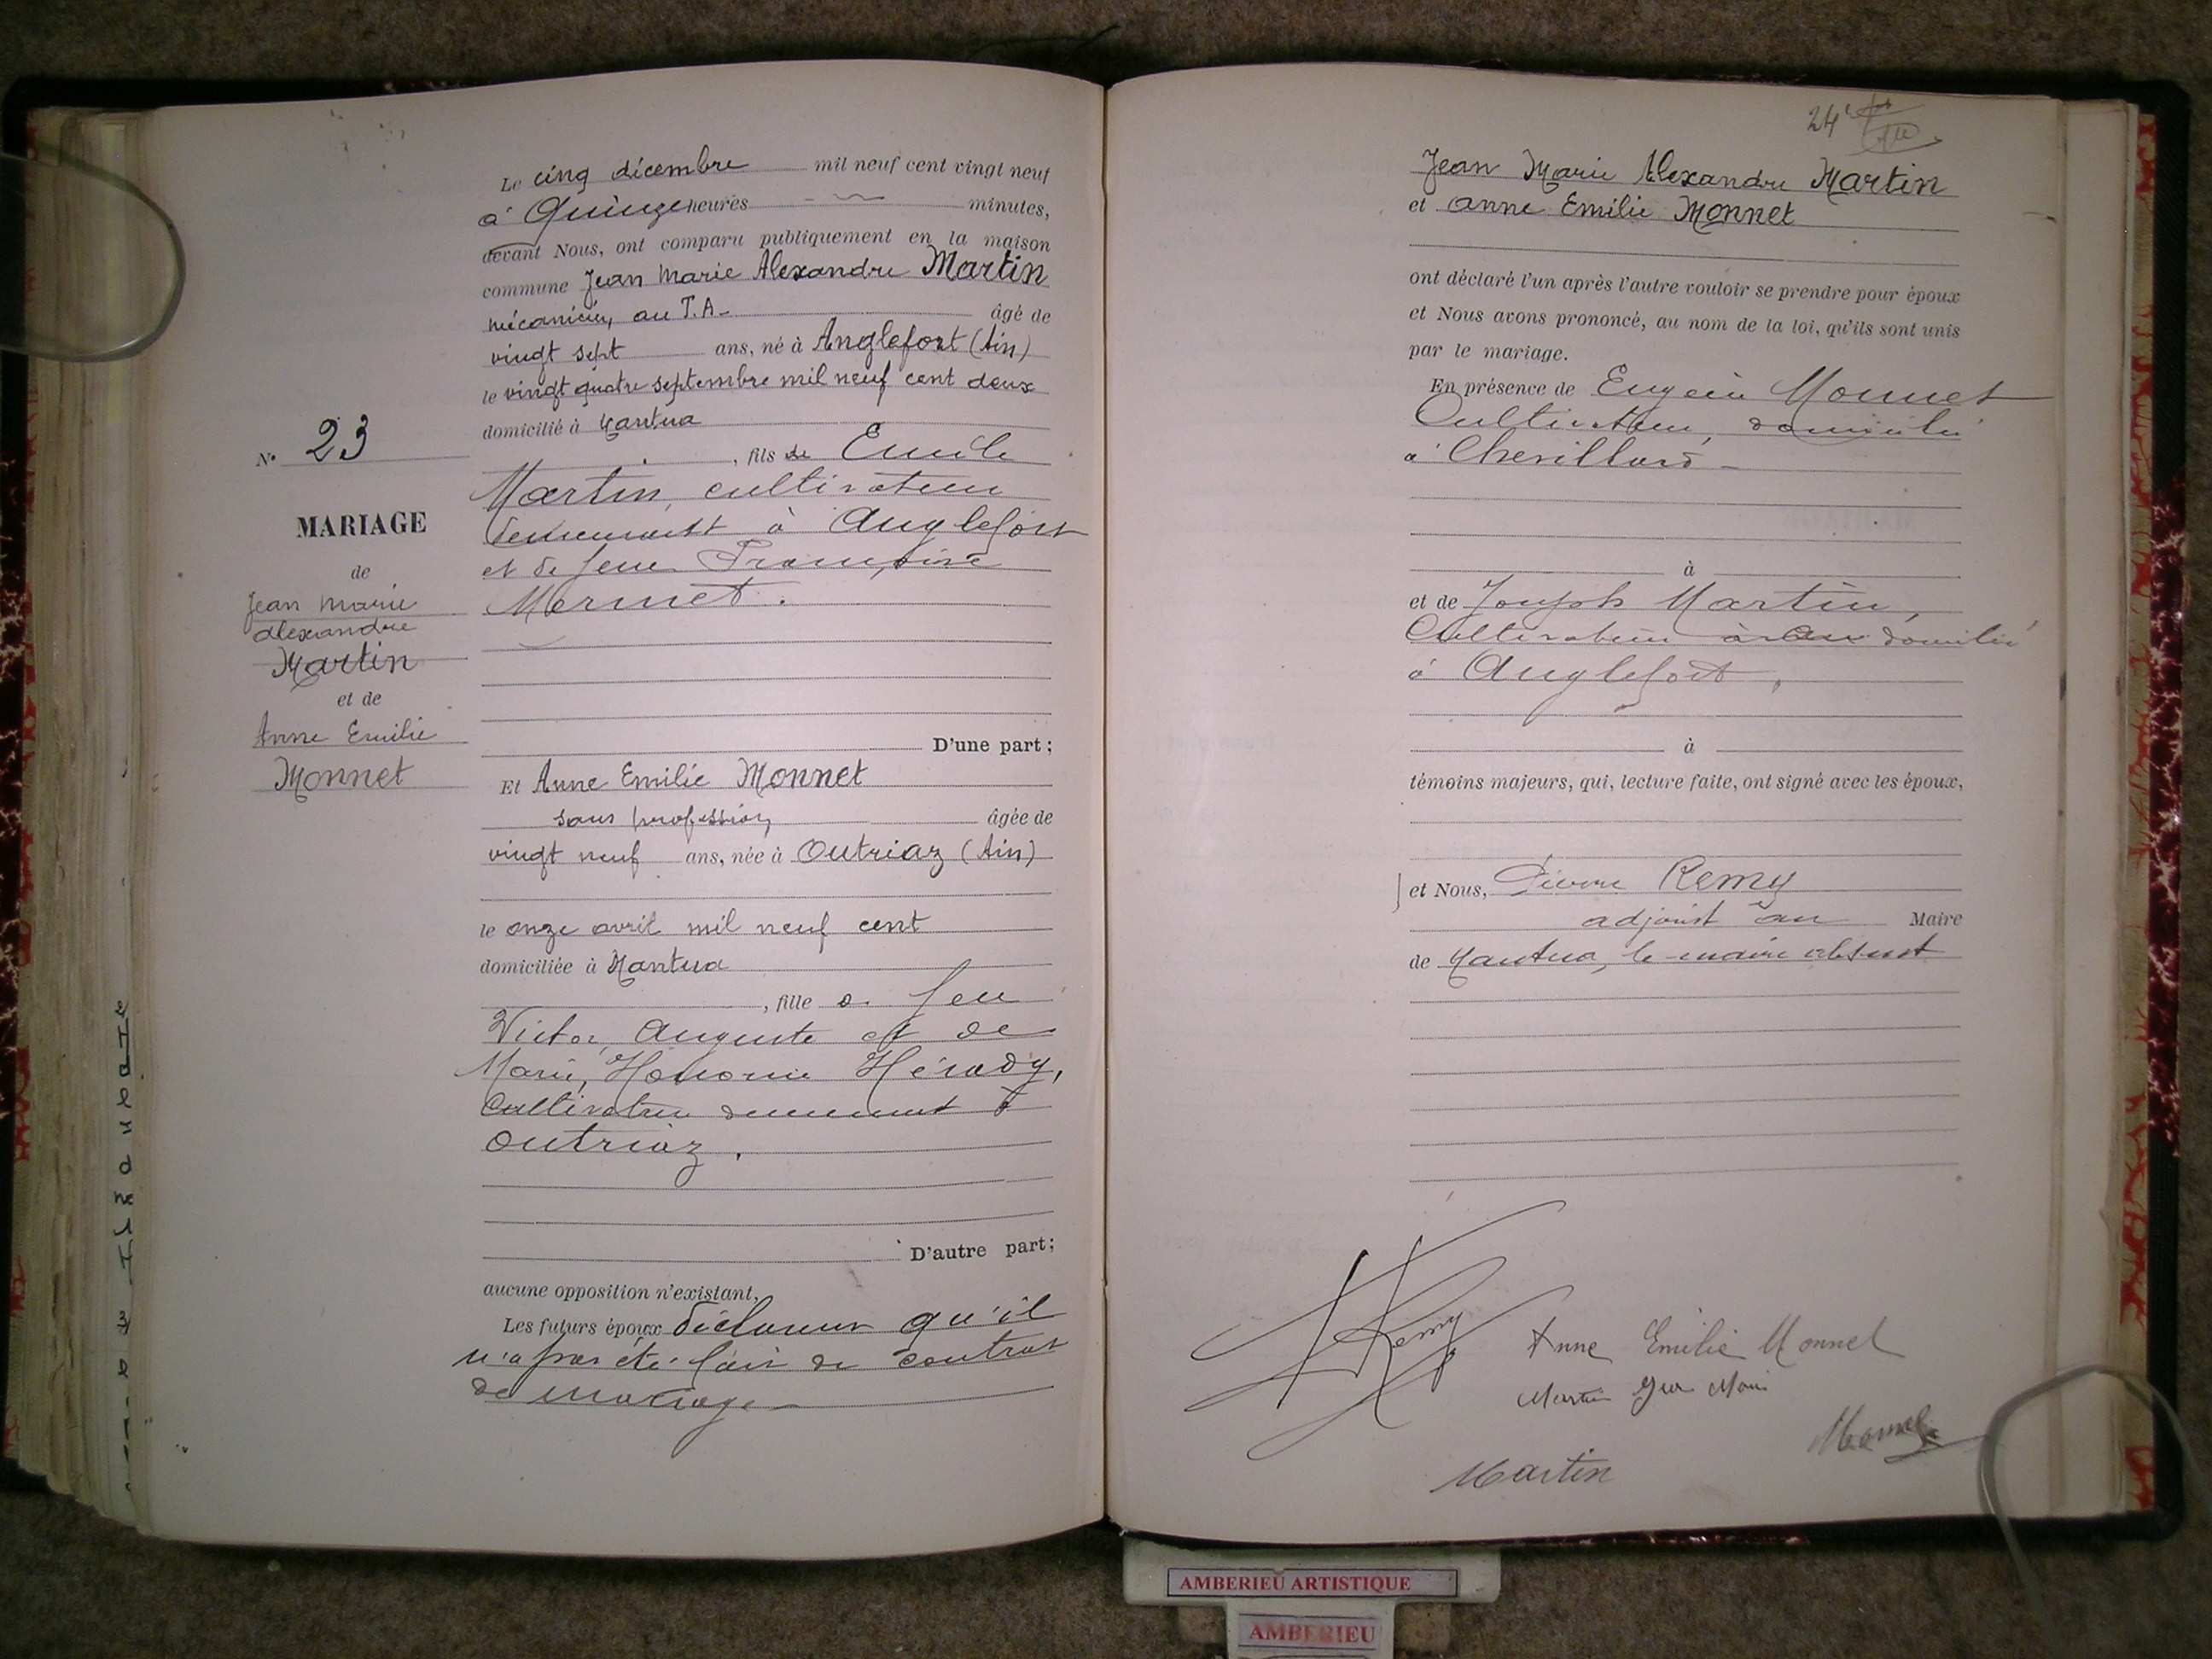 Le cinq décembre mil neuf cent vingt neuf
à Quinze heures minutes,
devant Nous, ont comparu publiquement en la maison
commune Jean Marie Alexandre Martin
mécanicien, au T.A- âgé de
vingt sept ans, né à Anglefort (Ain)
le vingt quatre septembre mil neuf cent deux
domicilié à Nantua
, fils de Emile
Martin, cultivateur
demeurant à Anglefort
et de feue Françoise
Mermet.
D'une part ;
Et Anne Emilie Monnet
sans profession, âgée de
vingt neuf ans, née à Outriaz (Ain)
le onze avril mil neuf cent
domiciliée à Nantua
, fille de feu
Victor, Auguste et de
Marie, Honorine
Cultivatrice demeurant à
Outriaz.
D'autre part ;
aucune opposition n'existant,
Les futurs époux déclarent qu'il
n'a pas été fait de contrat
de mariage
N° 23
MARIAGE
de
Jean Marie
Alexandre
Martin
et de
Anne Emilie
Monnet
24
Jean Marie Alexandre Martin
et Anne Emilie Monnet
ont déclaré l'un après l'autre vouloir se prendre pour époux
et Nous avons prononcé, au nom de la loi, qu'ils sont unis
par le mariage.
En présence de Eugène Monnet
Cultivateur, domicilié
à Chevillard -
à
et de Joseph Martin,
Cultivateur domicilié
à Anglefort,
à
témoins majeurs, qui, lecture faite, ont signé avec les époux,
et Nous, Pierre Remy
adjoint au Maire
de Nantua, le maire absent
Remy
Anne Emilie Monnet
Martin Jean Marie
Monnet
Martin
AMBERIEU ARTISTIQUE
AMBERIEU